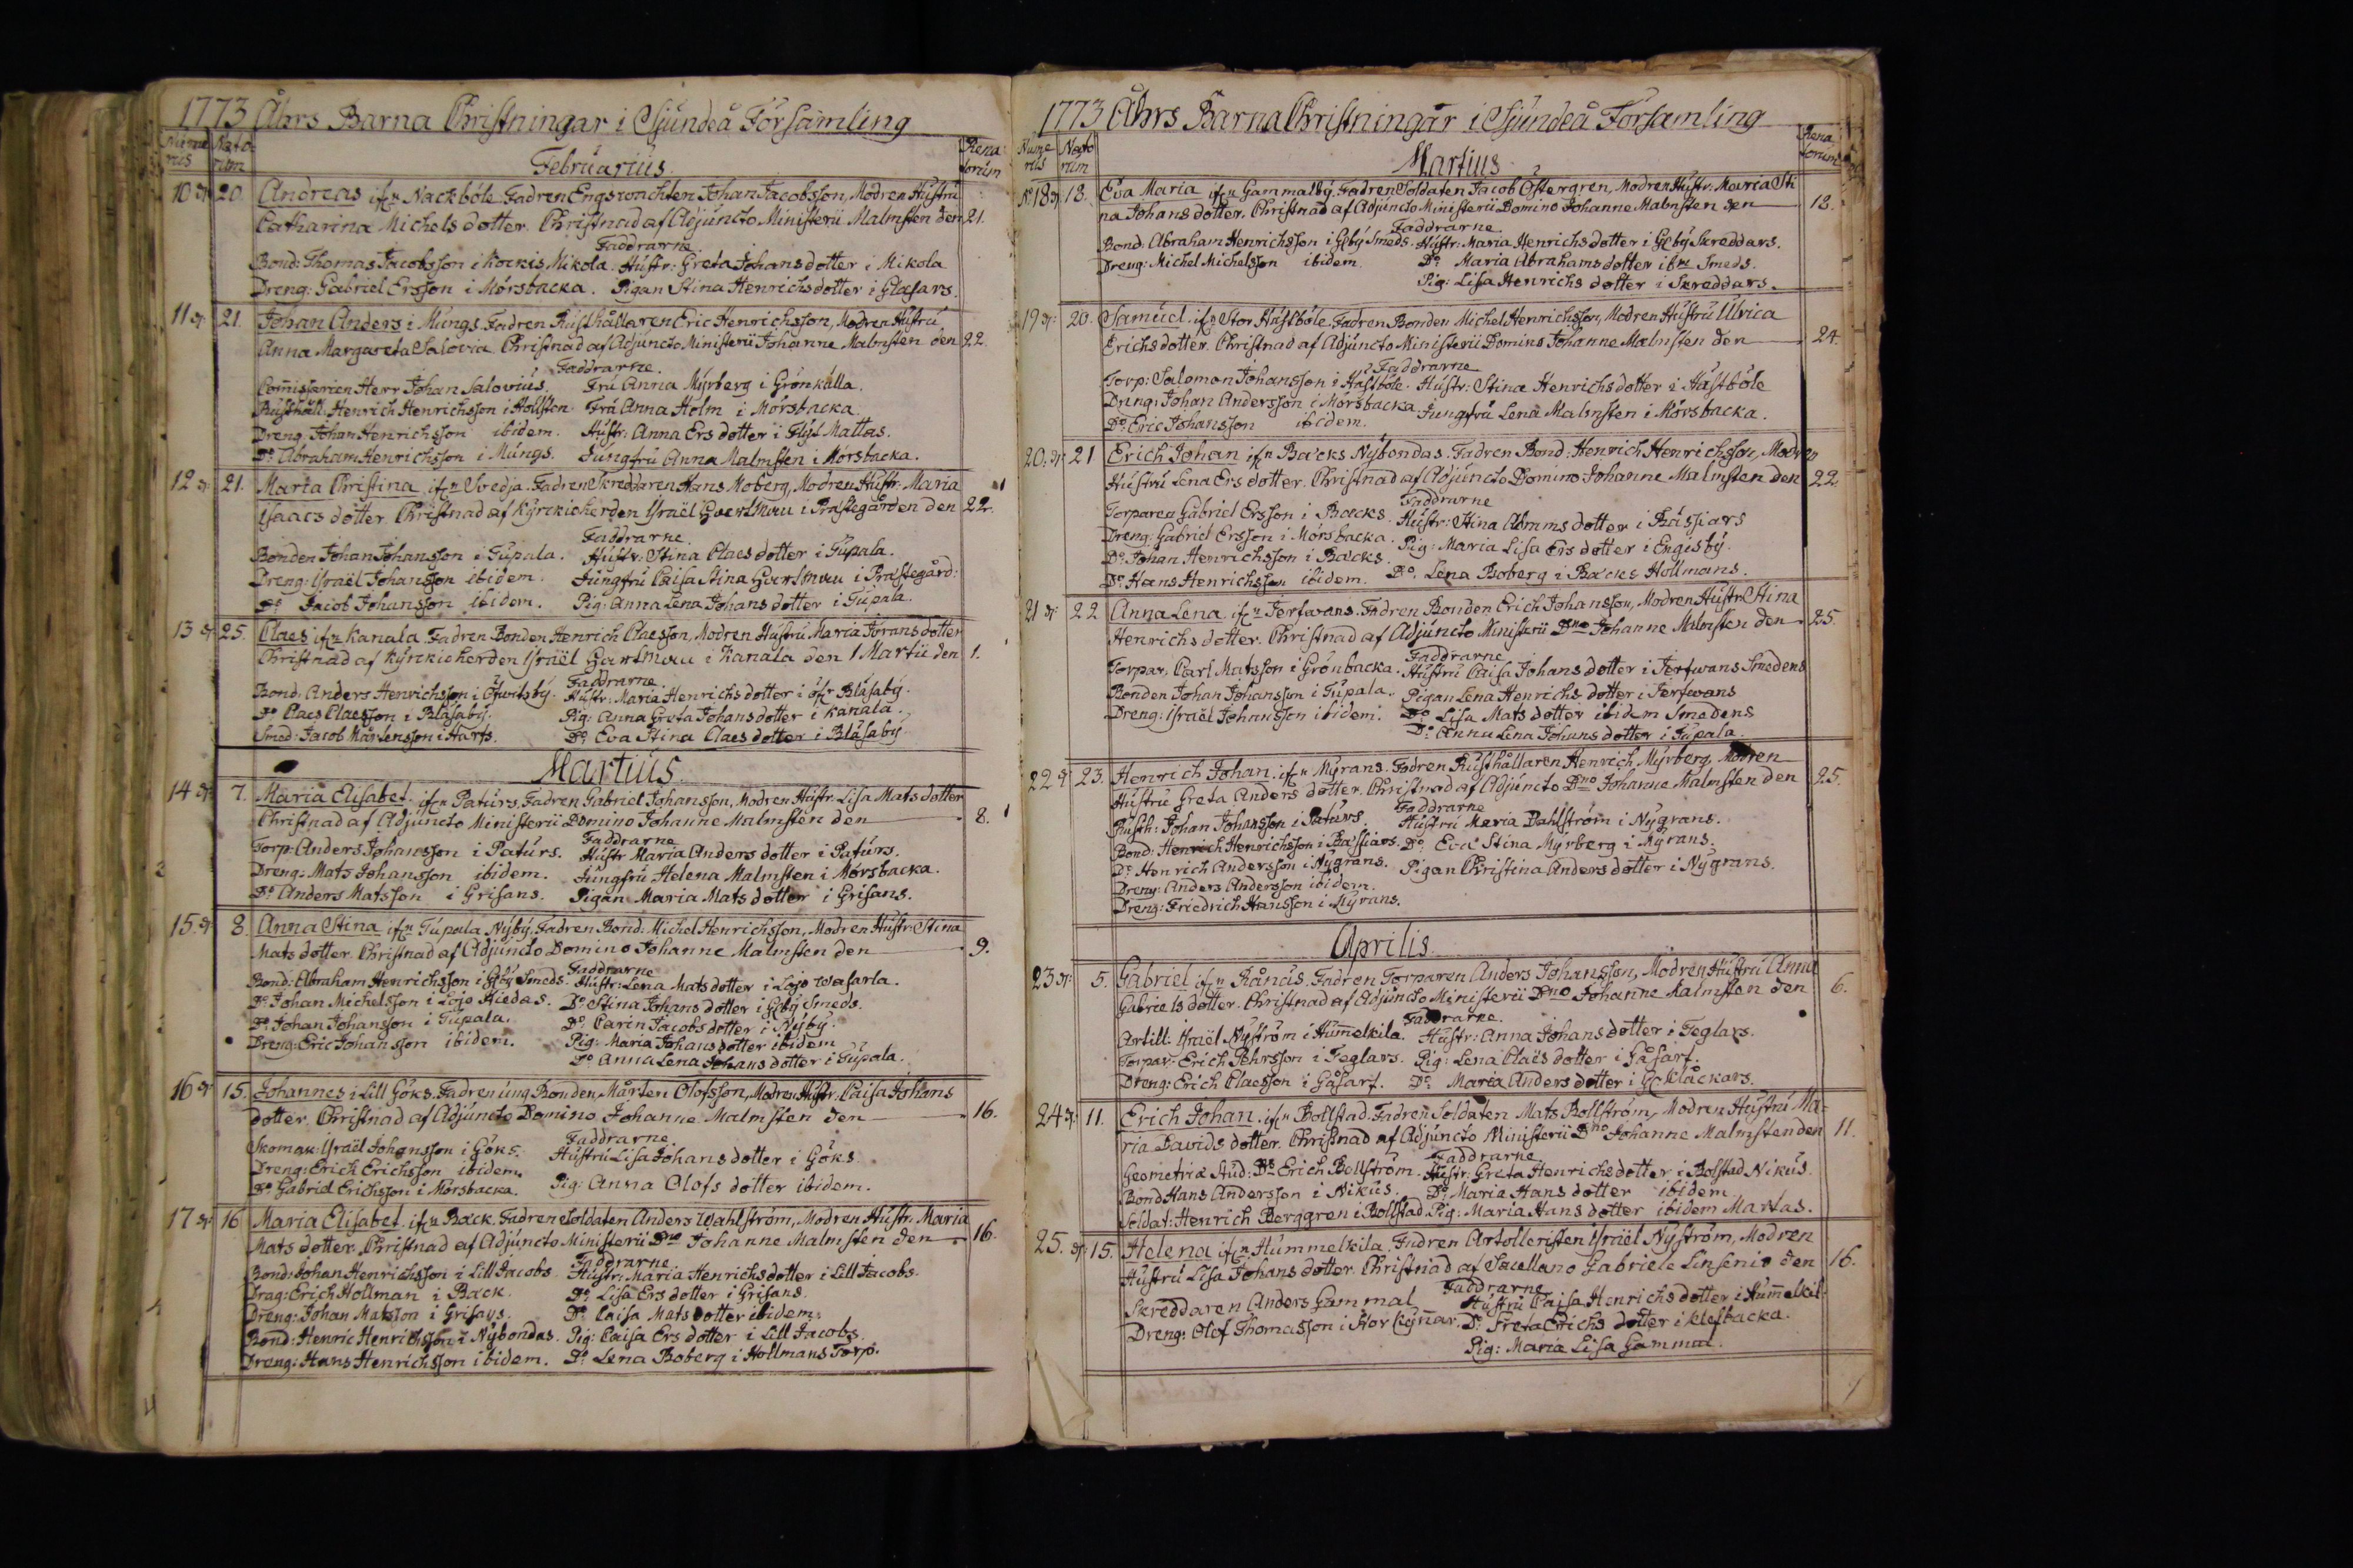 1773 Åhrs Barna Christningar i Sjundeå Församling
Nume Nato Rena
rus rum Februarius torum
10 20 Andreas ifrn Nackböle. Fadren Johan Jacobsson, Modren Hustru
Catharina Michels dotter. Christnad af Adjuncto Ministerii Malmsten den 21.
Faddrarne
Bond: Thomas Jacobsson i Kockis Mikola. Hustr: Greta Johans dotter i Mikola
Dreng: Gabriel Ersson i Mörsbacka. Pigan Stina Henrichs dotter i Glasars.
11 21. Johan Anders i Mungs. Fadren Rusthållaren Eric Henrichsson, Modren Hustru
Anna Margareta Salovia. Christnad af Adjuncto Ministerii Johanne Malmsten den 22.
Faddrarne.
Comissarien Herr Johan Salovius. Fru Anna Myrberg i Grönkulla.
Rusthåll: Henrich Henrichsson i Hollsten. Fru Anna Holm i Mörsbacka.
Dreng. Johan Henrichsson ibidem. Hustr: Anna Ers dotter i Flyt Mattas.
Do Abraham Henrichsson i Mungs. Jungfru Anna Malmsten i Mörsbacka.
12 21. Maria Christina ifrn Svedja. Fadren Skreddaren Hans Moberg, Modren Hustr: Maria
Isaacs dotter. Christnad af Kyrckioherden Israël i Prästegården den 22.
Faddrarne.
Bonden Johan Johansson i Tupala. Hustr: Stina Claes dotter i Tupala.
Dreng: Israël Johansson ibidem. Jungfru Caisa Stina i Prästegård:
Do Jacob Johansson ibidem. Pig: Anna Lena Johans dotter i Tupala.
13 25. Claes ifrn Kanala. Fadren Bonden Henrich Claesson, Modren Hustru Maria Jörans dotter
Christnad af Kyrckioherden Israël i Kanala den 1 Martii den 1.
Faddrarne
Bond: Anders Henrichsson i Hustr: Maria Henrichs dotter i öfr Blåsaby.
Do Claes Claesson i Blåsaby. Pig: Anna Greta Johans dotter i Kanala.
Smed: Jacob Mårtensson i Harfs. Do Eva Stina Claes dotter i Blåsaby.
Martius.
14 7. Maria Elisabet. ifrn Paturs. Fadren Gabriel Johansson, Modren Hustr. Lisa Mats dotter
Christnad af Adjuncto Ministerii Domino Johanne Malmsten den 8.
Faddrarne
Torp: Anders Johansson i Paturs. Hustr Maria Anders dotter i Paturs.
Dreng: Mats Johansson ibidem. Jungfru Helena Malmsten i Mörsbacka.
Do Anders Matsson i Grisans. Pigan Maria Mats dotter i Grisans.
15. 8. Anna Stina ifrn Tupala Nyby. Fadren Bond: Michel Henrichsson, Modren Hustr: Stina
Mats dotter. Christnad af Adjuncto Domino Johanne Malmsten den 9.
Faddrarne
Bond: Abraham Henrichsson i Gby Smeds. Hustr: Lena Mats dotter i Lojo Wasarla.
Do Johan Michelsson i Lojo Hiedas. Do Stina Johans dotter i Gby Smeds.
Do Johan Johansson i Tupala. Do Carin Jacobs dotter i Nyby.
Dreng: Eric Johansson ibidem. Pig: Maria Johans dotter ibidem
Do Anna Lena Johans dotter i Tupala.
16 15. Johannes i Lill Göks. Fadren ung Bonden Mårten Olofsson, Modren Hustr. Caisa Johans
dotter. Christnad af Adjuncto Domino Johanne Malmsten den 16.
Faddrarne
Skomak: Israël Johansson i Göks. Hustru Lisa Johans dotter i Göks.
Dreng: Erich Erichsson ibidem.
Do Gabriel Erichsson i Mörsbacka. Pig: Anna Olofs dotter ibidem.
17 16 Maria Elisabet. ifrn Back. Fadren Soldaten Anders Wahlström, Modren Hustr. Maria
Mats dotter. Christnad af Adjuncto Ministerii Dno Johanne Malmsten den 16.
Faddrarne
Bond: Johan Henrichsson i Lill Jacobs. Hustr: Maria Henrichs dotter i Lill Jacobs.
Drag: Erich Hollman i Back. Do Lisa Ers dotter i Grisans.
Dreng: Johan Matsson i Grisans. Do Caisa Mats dotter ibidem.
Bond: Henric Henrichsson i Nybondas. Pig: Caisa Ers dotter i Lill Jacobs.
Dreng: Hans Henrichsson ibidem. Do Lena Boberg i Hollmans Torp.
1773 Åhrs Barna Christningar i Sjundeå Församling
Nume Nato Rena
rus rum Martius torum
No 18 13. Eva Maria ifrn Gammalby. Fadren Soldaten Jacob Östergren, Modren Hustr: Maria Sti
na Johans dotter. Christnad af Adjuncto Ministerii Domino Johanne Malmsten den 18.
Faddrarne
Bond: Abraham Henrichsson i Gby Smeds. Hustr: Maria Henrichs dotter i Gby Skreddars.
Dreng: Michel Michelsson ibidem. Do Maria Abrahams dotter Smeds.
Pig: Lisa Henrichs dotter i Skreddars.
19 20. Samuel ifrn Stor Hästböle. Fadren Bonden Michel Henrichsson, Modren Hustru Ulrica
Erichs dotter. Christnad af Adjuncto Ministerii Domino Johanne Malmsten den 24.
Faddrarne
Torp: Salomon Johansson i Hästböle. Hustr: Stina Henrichs dotter i Hästböle
Dreng: Johan Andersson i Mörsbacka. Jungfru Lena Malmsten i Mörsbacka.
Do Eric Johansson ibidem.
20. 21 Erich Johan ifrn Backs Nybondas. Fadren Bond: Henrich Henrichsson, Modren
Hustru Lena Ers dotter. Christnad af Adjuncto Domino Johanne Malmsten den 22.
Faddrarne
Torparen Gabriel Ersson i Backs. Hustr: Stina dotter i Bässiars
Dreng: Gabriel Ersson i Mörsbacka. Pig: Maria Lisa Ers dotter i Engisby.
Do Johan Henrichsson i Backs.
Do Hans Henrichsson ibidem. Do Lena Boberg i Backs Hollmans.
21 22 Anna Lena ifrn Jerfwans. Fadren Bonden Erich Johansson, Modren Hustr Stina
Henrichs dotter. Christnad af Adjuncto Ministerii Dno Johanne Malmsten den 25.
Faddrarne
Torpar. Carl Matsson i Grönbacka. Hustru Caisa Johans dotter i Jerfwans Smedens
Bonden Johan Johansson i Tupala. Pigan Lena Henrichs dotter i Jerfwans
Dreng: Israël Johansson ibidem. Do Lisa Mats dotter ibidem Smedens
Do Anna Lena Johans dotter i Tupala.
22 23. Henrich Johan. ifrn Myrans. Fadren Rusthållaren Henrich Myrberg, Modren
Hustru Greta Anders dotter. Christnad af Adjuncto Dno Johanne Malmsten den 25.
Faddrarne
Rusth: Johan Johansson i Paturs. Hustru Maria Dahlström i Nygrans.
Bond: Henrich Henrichsson i Bässiars. Do Eva Stina Myrberg i Myrans.
Do Henrich Andersson i Nygrans. Pigan Christina Anders dotter i Nygrans.
Dreng: Anders Andersson ibidem.
Dreng: Friedrich Hansson i Myrans.
Aprilis.
23 5. Gabriel ifrn Rånäs. Fadren Torparen Anders Johansson, Modren Hustru Anna
Gabriels dotter. Christnad af Adjuncto Ministerii Dno Johanne Malmsten den 6.
Faddrarne.
Artill: Israël Nyström i Hummelkila. Hustr: Anna Johans dotter i Teglars.
Torpar: Erich Pehrsson i Teglars. Pig: Lena Claës dotter i Gåsarf.
Dreng: Erich Claesson i Gåsarf. Do Maria Anders dotter i Klåckars.
24 11. Erich Johan ifrn Bollstad. Fadren Soldaten Mats Bollström, Modren Hustru Ma-
ria Davids dotter. Christnad af Adjuncto Ministerii Dno Johanne Malmsten den 11.
Faddrarne
Geometriæ Stud: Erich Bollström. Hustr: Greta Henrichs dotter i Bolstad Nikus.
Bond Hans Andersson i Nikus. Do Maria Hans dotter ibidem
Soldat: Henrich Berggren i Bollstad. Pig: Maria Hans dotter ibidem Martas.
25. 15. Helena ifrn Hummelkila. Fadren Artolleristen Israël Nyström, Modren
Hustru Lisa Johans dotter. Christnad af Sacellano Gabriele Linsenio den 16.
Faddrarne
Skreddaren Anders Gammal Hustru Caisa Henrichs dotter i Hummelkil:
Dreng: Olof Thomasson i Stor Do Greta Erichs dotter i Klefbacka.
Pig: Maria Lisa Gammal.